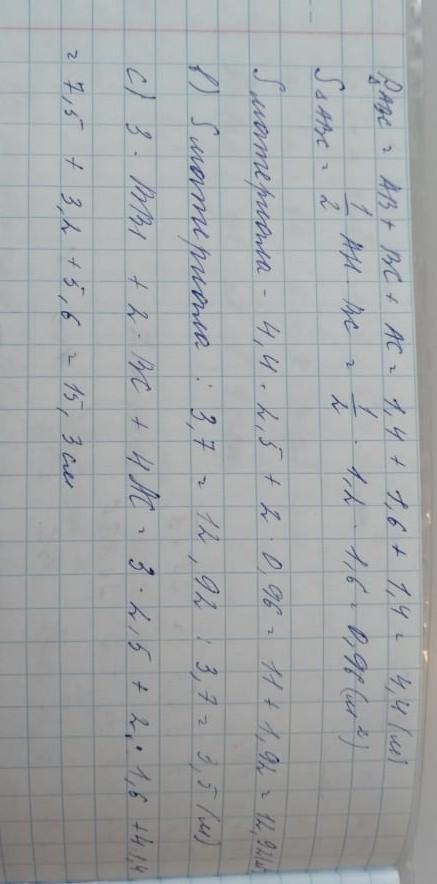 P△ABC = AB + BC + AC = 1,4 + 1,6 + 1,4 = 4,4 (м)
S△ABC = 1/2 AH · BC = 1/2 · 1,2 · 1,6 = 0,96 (м²)
Sматериала - 4,4 · 2,5 + 2 · 0,96 = 11 + 1,92 = 12,92 м²
b) Sматериала : 3,7 = 12,92 : 3,7 = 3,5 (м)
c) 3 · BB₁ + 2 · BC + 4AC = 3 · 2,5 + 2 · 1,6 + 4·1,4
= 7,5 + 3,2 + 5,6 = 15,3 см